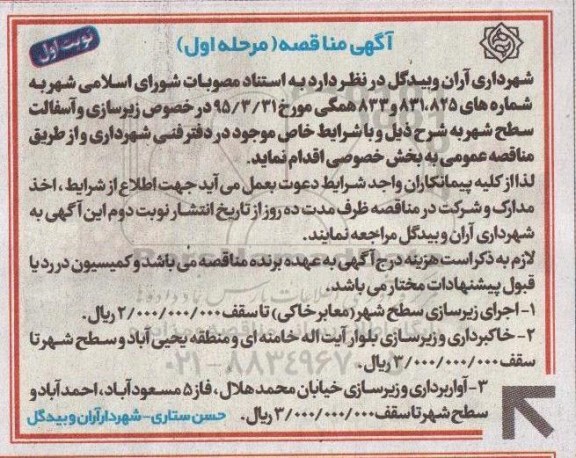 آگهی مناقصه (مرحله اول)
نوبت اول
شهرداری آران وبیدگل در نظر دارد به استناد مصوبات شورای اسلامی شهر به
شماره های ۸۳۱،۸۲۵ و ۸۳۳ همگی مورخ ۹۵/۳/۳۱ در خصوص زیرسازی و آسفالت
سطح شهر به شرح ذیل و با شرایط خاص موجود در دفتر فنی شهرداری و از طریق
مناقصه عمومی به بخش خصوصی اقدام نماید.
لذا از کلیه پیمانکاران واجد شرایط دعوت بعمل می آید جهت اطلاع از شرایط ، اخذ
مدارک و شرکت در مناقصه ظرف مدت ده روز از تاریخ انتشار نوبت دوم این آگهی به
شهرداری آران و بیدگل مراجعه نمایند.
لازم به ذکر است هزینه درج آگهی به عهده برنده مناقصه می باشد و کمیسیون در رد یا
قبول پیشنهادات مختار می باشد.
۱- اجرای زیرسازی سطح شهر (معابر خاکی) تا سقف ۲/۰۰۰/۰۰۰/۰۰۰ ریال.
۲- خاکبرداری و زیرسازی بلوار آیت اله خامنه ای و منطقه یحیی آباد و سطح شهر تا
سقف ۳/۰۰۰/۰۰۰/۰۰۰ ریال.
۳- آواربرداری و زیرسازی خیابان محمد هلال، فاز ۵ مسعودآباد، احمدآباد و
سطح شهر تا سقف ۳/۰۰۰/۰۰۰/۰۰۰ ریال.
حسن ستاری - شهردار آران و بیدگل
۰۲۱-۸۸۳۴۹۶۷۰